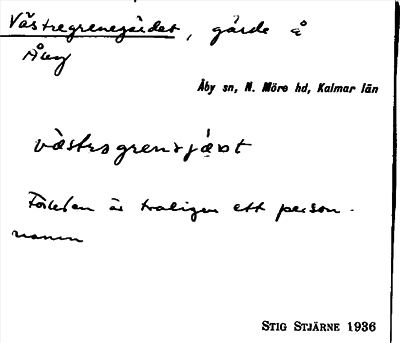 Västregrenegärdet, gärde å
Åby sn, N. Möre hd, Kalmar län
Förleden är troligen ett person-
namn
STIG STJÄRNE 1936